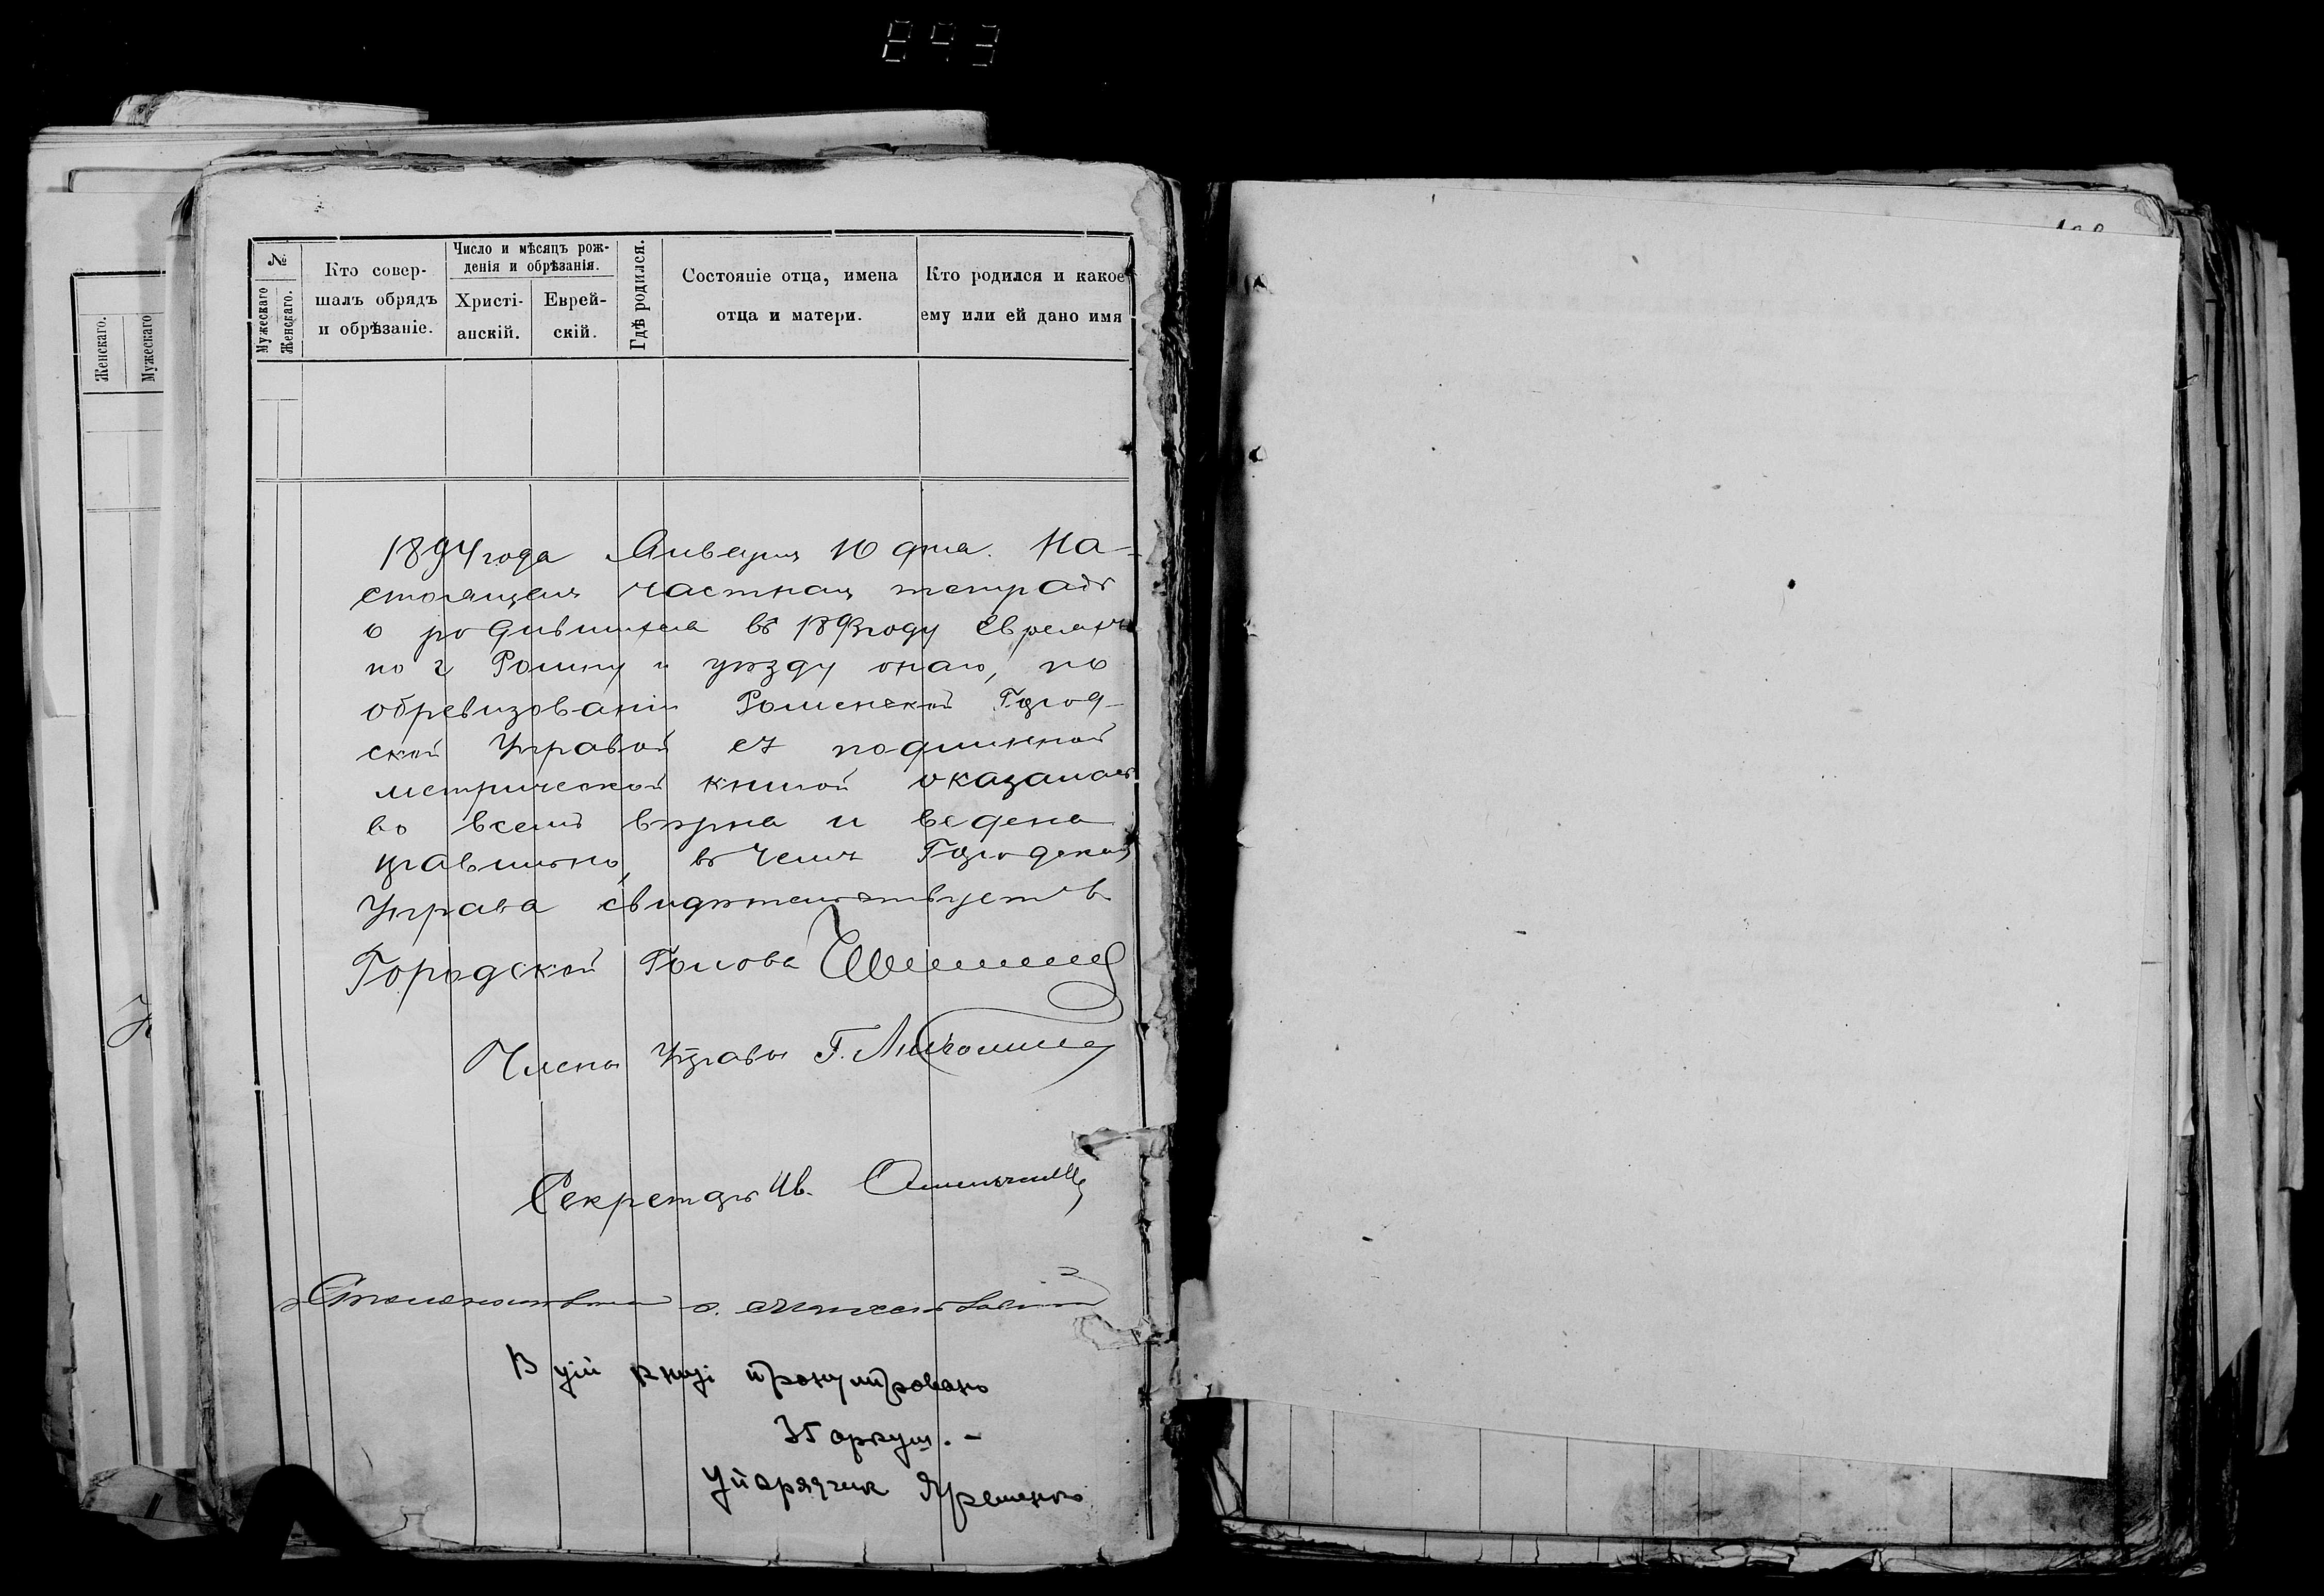 843
№
Мужескаго
Женскаго.
Кто совер-
шалъ обрядъ
и обрѣзаніе.
Число и мѣсяцъ рож-
денія и обрѣзанія.
Христі-
анскій.
Еврей-
скій.
Гдѣ родился.
Состояніе отца, имена
отца и матери.
Кто родился и какое
ему или ей дано имя
Женскаго.
Мужескаго
1894 года Января 10 дня. На-
стоящая частная тетрадь
о родившихся въ 1893 году Евреяхъ
по г Ромну и уѣзду онаго, по
обревизованіи Роменской Город-
ской Управой съ подлинной
метрической книгой оказалась
во всемъ вѣрна и ведена
правильно, въ чемъ Городская
Управа свидѣтельствуетъ
Городской Голова
Члены Управы Г.
Секретарь Ив.
В цій книзі пронумеровано
35 аркуш. -
Упорядчик Яременко